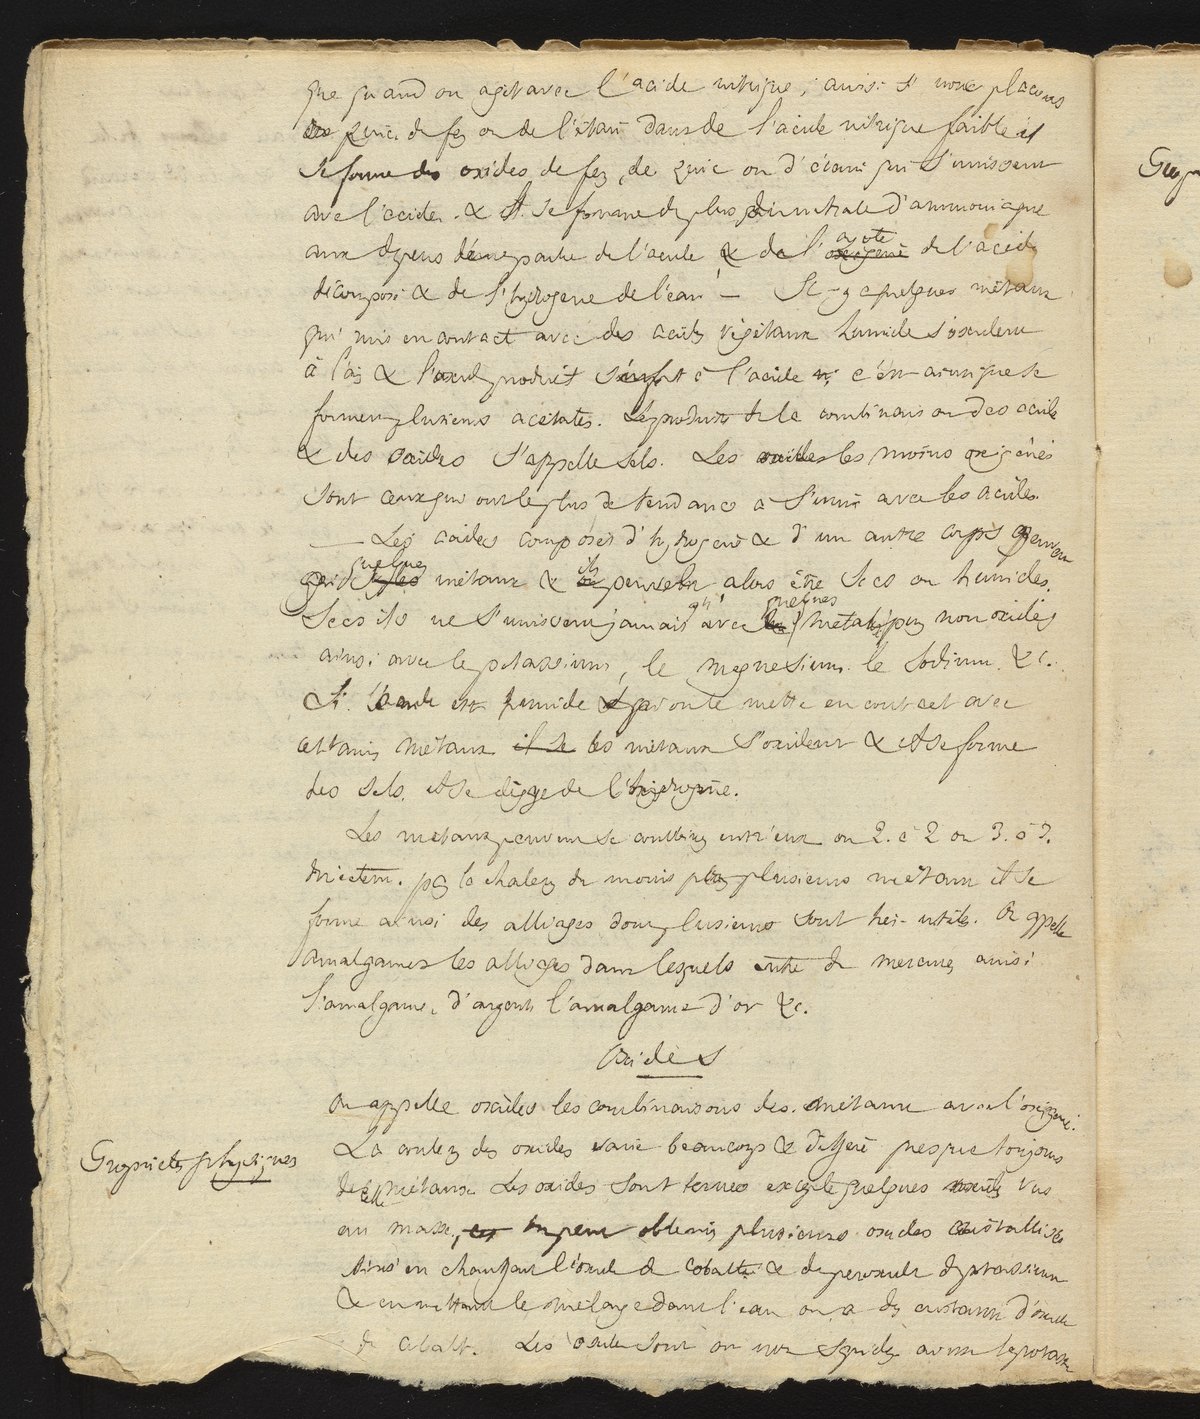 que quand on agit avec l'acide nitrique, ainsi si nous placons
du zinc du fer ou de l'étain dans de l'acide nitrique faible il
se forme des oxides de fer, de zinc ou d'étain qui s'unissent
avec l'acide. & il se forme de plus du nitrate d'ammoniaque
aux dépens d'une partie de l'acide & de l'azote de l'acide
décomposé & de l'hydrogene de l'eau — Il y a quelques métaux
qui mis en contact avec des acides végétaux humide s'oxident
à l'air & l'oxide produit s'unit à l'acide c'est ainsi que se
forment plusieurs acétates. Le produit de la combinaison des acide
& des oxides s'appelle sels. Les oxides les moins oxigénés
sont ceux qui ont le plus de tendance à s'unir avec les acides.
— Les acides composés d'hydrogene & d'un autre corps
quelques métaux & ils peuvent alors être secs ou humides.
Secs ils ne s'unissent jamais qu'avec quelques métaux non oxidés
ainsi avec le potassium, le magnesium le sodium &c.
Si l'acide est humide & qu'on le mette en contact avec
certains métaux il se les métaux s'oxident & il se forme
des sels. il se dégage de l'hydrogène.
Les métaux peuvent se combiner entr'eux ou 2. à 2 ou 3. à 3.
directem. par la chaleur du moins plusieurs métaux il se
forme ainsi des alliages dont plusieurs sont très-utiles. On appelle
amalgames les alliages dans lesquels entre du mercure ainsi
l'amalgame d'argent l'amalgame d'or &c.
Oxides
On appelle oxides les combinaisons des métaux avec l'oxigene.
Propriétés physiques
La couleur des oxides varie beaucoup & differe presque toujours
de celle métaux. Les oxides sont ternes excepté quelques vus
en masse, on peut obtenir plusieurs oxides cristallisés
ainsi en chauffant l'oxide de cobalt & du peroxide de potassium
& en mettant le mélange dans l'eau on a des cristaux d'oxide
de cobalt. Les oxides sont ou non liquides